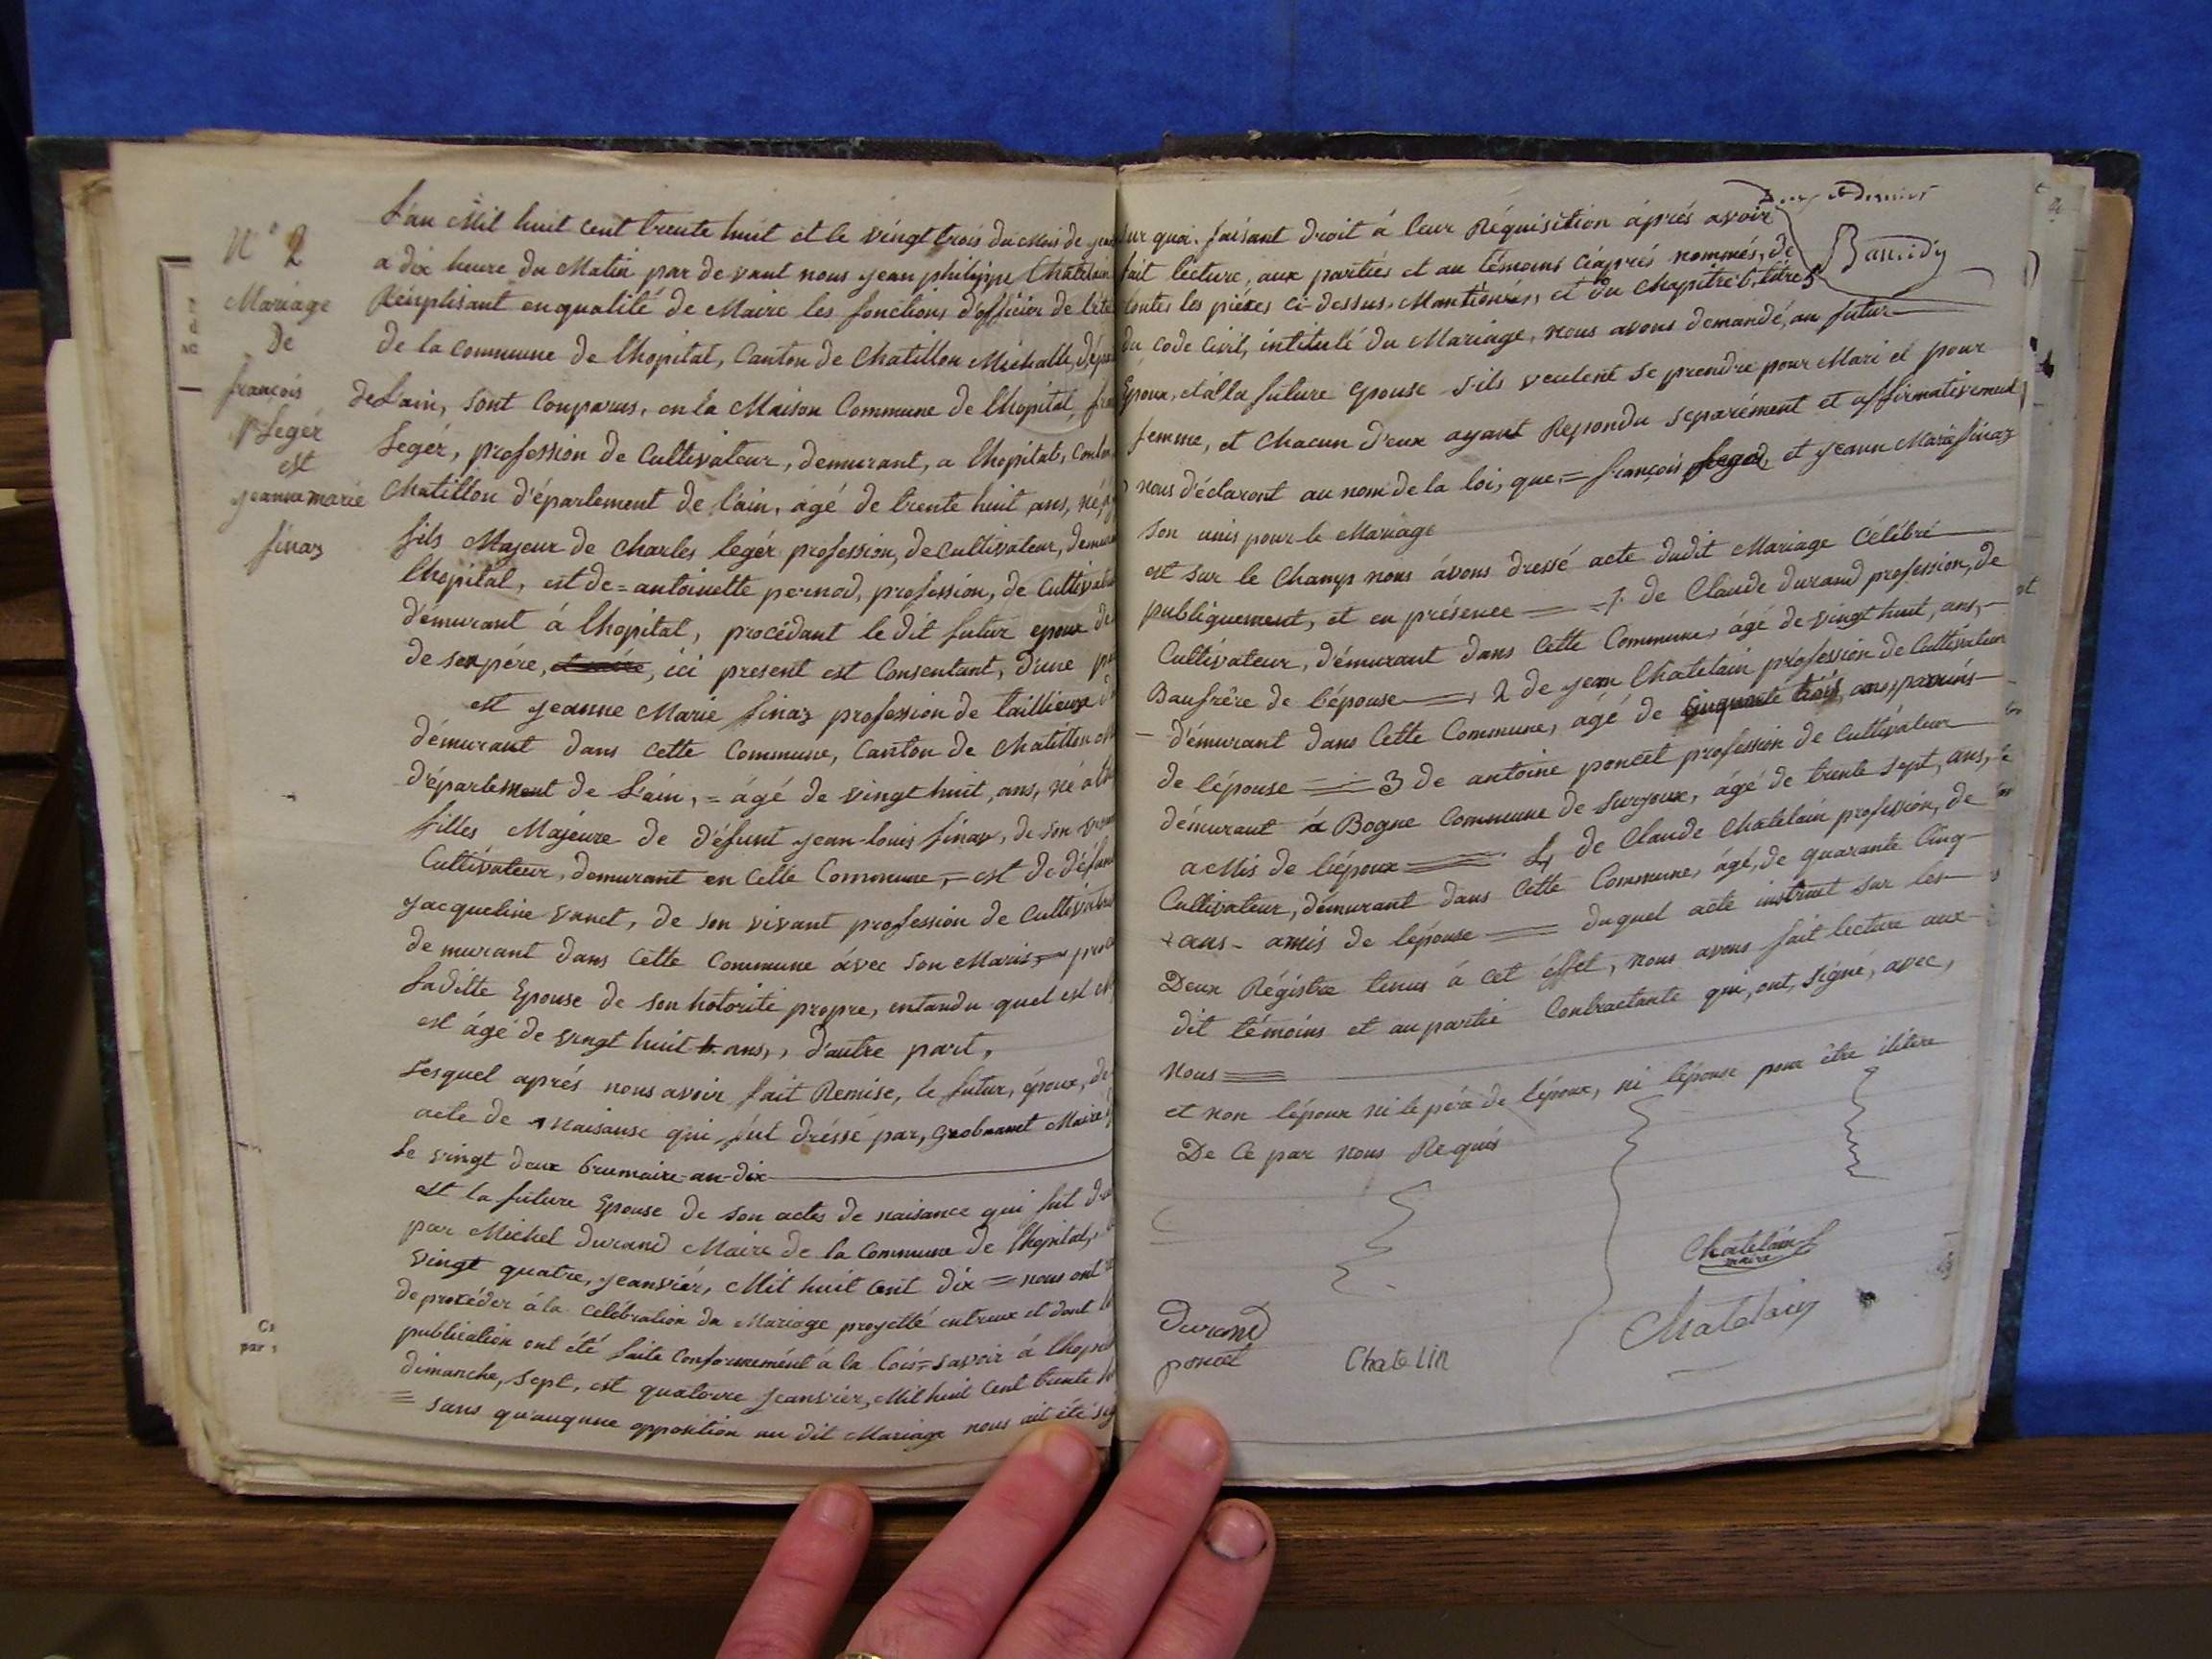 N° 2
Mariage
De
françois
Legér
est
jeanne marie
finaz
L'an Mil huit Cent trente huit et le vingt trois du Mois de
a dix heure du Matin par de vant nous jean philippe Chatelain
Remplisant en qualité de Maire les fonctions d'officier de
de la Commune de lhopital, Canton de Chatillon Michaille,
de Lain, sont Conparus, en la Maison Commune de lhopital,
Legér, profession de Cultivateur, demurant, a lhopital,
Chatillon d'épartement de l'ain, agé de trente huit ans, né
fils Majeur de Charles legér profession, de Cultivateur,
lhopital, est de = antoinette pernod, profession, de
d'émurant á lhopital, procédant le dit futur epoux
de son pére, et mére, ici present est Consentant, d'une
est jeanne Marie finaz profession de taillieuse
démurant dans Cette Commune, Canton de Chatillon
d'épartement de L'ain, = ágé de vingt huit, ans, né a
filles Majeure de d'éfunt jean-louis finaz, de son
Cultivateur, demurant en Cette Commune, = est de
jacqueline vanet, de son vivant profession de
de murant dans Cette Commune ávec son Maris,
Laditte Epouse de son hotorité propre, entandu quel est
est ágé de vingt huit ans, , d'autre part,
Lesquel aprés nous avoir fait Remise, le futur, époux,
acte de naisause qui fut dréssé par, Maire
Le vingt deux brumaire-an-dix
est la future Epouse de son actes de naisance qui fut
par Michel Durand Maire de la Commune de lhopital,
vingt quatre, jeanviér, Mil huit Cent dix = nous ont
de procéder á la Célébration du Mariage projetté entreux et dont
publication ont été faite Conformémént á la loi = savoir á
dimanche, sept, est quatorze jeanviér, Mil huit Cent trente
= sans qu'auqune opposition au dit Mariage nous ait été
Sur quoi. faisant droit á leur Réquisition áprés avoir
fait lecture, aux partiés et au témoins Ciáprés nommés, de
toutes les piéces Ci-dessus, Mantionés, et du Chapitre 6, titre 5
Bamidy
du Code Civil, intitulé du Mariage, nous avons demandé, au futur
Epoux, et á la future Epouse s'ils veulent se prendre pour Mari et pour
femme, et Chacun d'eux ayant Répondu separément et affirmativement
nous d'éclaront au nom de la loi, que = françois Leger, et jeann Marie finaz
son unis pour le Mariage
est sur le Champs nous ávons dressé acte dudit Mariage Célébré
publiquement, et en présence = 1. de Claude Durand profession, de
Cultivateur, d'émurant dans Cette Commune, ágé de vingt huit, ans,
Baufrêre de l'épouse 2 de jean Chatelain profession de Cultivateur
d'émurant dans Cette Commune, agé de Cinquante trois, ans,
de lépouse = 3 de antoine poncet profession de Cultivateur
démurant á Bogne Commune de Surjoux, ágé de trente sept, ans,
a Mis de l'époux = 4 de Claude Chatelain profession, de
Cultivateur, démurant dans Cette Commune, ágé, de quarante Cinq
ans - amis de lépouse duquel acte instruit sur les
Deux Régistre tenus á Cet éffet, nous avons fait lecture aux
dit témoins et au partie Contractante qui, ont, signé, avec,
Nous =
et non lépoux ni le pére de l'époux, ni lépouse pour être ilitere
De Ce par nous Requis
Chatelain
maire
Durand
poncet
Chatelin
Chatelain